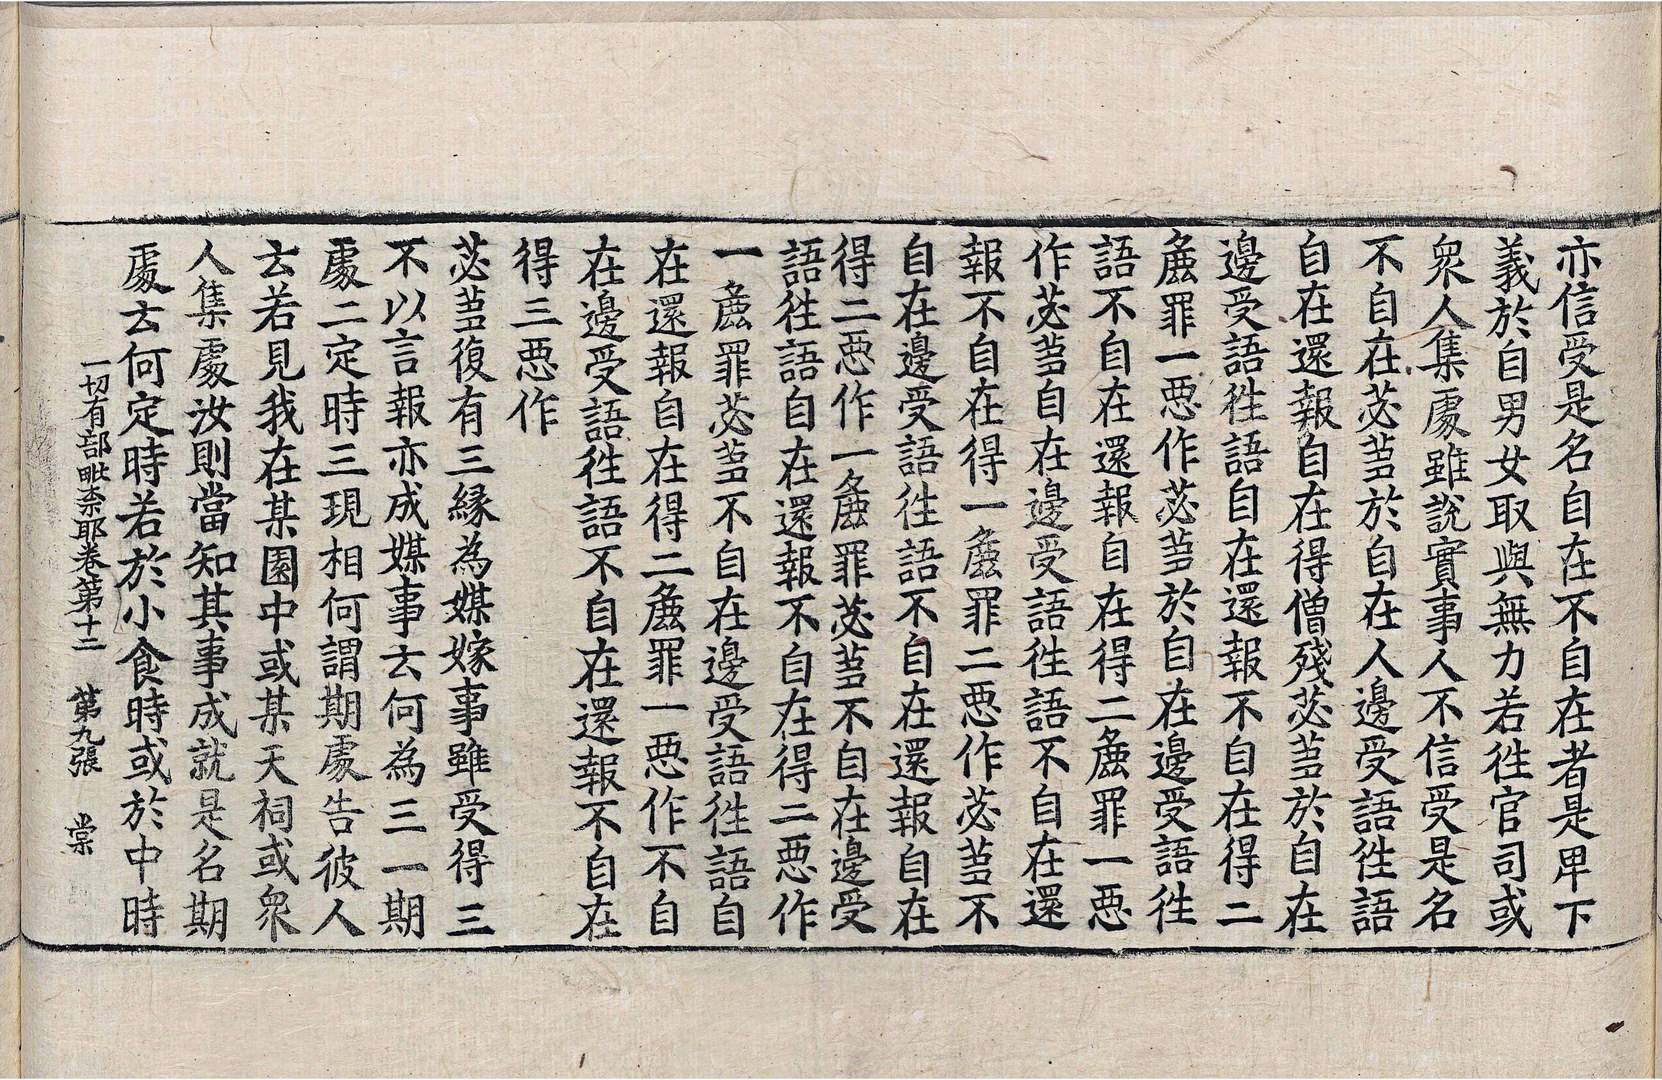 亦信受是名自在不自在者是卑下
義於自男女取與無力若徃官司或
衆人集處雖說實事人不信受是名
不自在苾蒭於自在人邊受語徃語
自在還報自在得僧殘苾蒭於自在
邊受語徃語自在還報不自在得二
麁罪一惡作苾蒭於自在邊受語徃
語不自在還報自在得二麁罪一惡
作苾蒭自在邊受語徃語不自在還
報不自在得一麁罪二惡作苾蒭不
自在邊受語徃語不自在還報自在
得二惡作一麁罪苾蒭不自在邊受
語徃語自在還報不自在得二惡作
一麁罪苾蒭不自在邊受語徃語自
在還報自在得二麁罪一惡作不自
在邊受語徃語不自在還報不自在
得三惡作
苾蒭復有三緣為媒嫁事雖受得三
不以言報亦成媒事云何為三一期
處二定時三現相何謂期處告彼人
云若見我在某園中或某天祠或衆
人集處汝則當知其事成就是名期
處云何定時若於小食時或於中時
一切有部毗柰耶卷第十二 第九張 棠